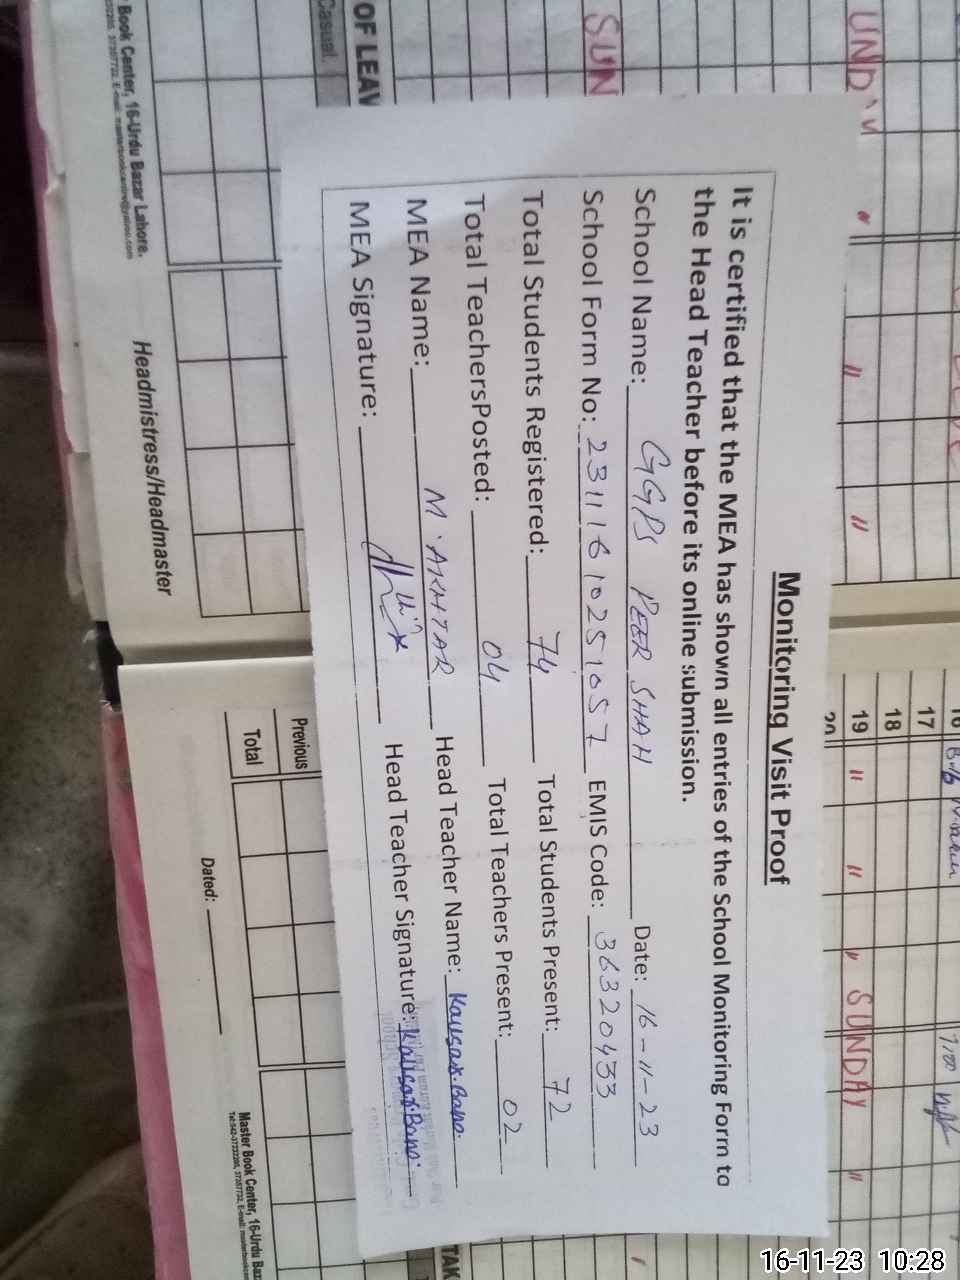 Monitoring Visit Proof
It is certified that the MEA has shown all entries of the School Monitoring Form to
the Head Teacher before its online submission.
School Name: GGPS PEER SHAH Date: 16-11-23
School Form No: 23111610251057 EMIS Code: 36320433
Total Students Registered: 74 Total Students Present: 72
Total TeachersPosted: 04 Total Teachers Present: 02
MEA Name: M. AKHTAR Head Teacher Name: Kausar Bano.
MEA Signature: Head Teacher Signature: Kausar Bano.
OF LEAV
Casual.
SUN
UNDAY
Headmistress/Headmaster
Book Center, 16-Urdu Bazar Lahore.
16
17
18
19 " " " SUNDAY "
20
Previous
Total
Dated:
Master Book Center, 16-Urdu Baz
TAK
16-11-23 10:28